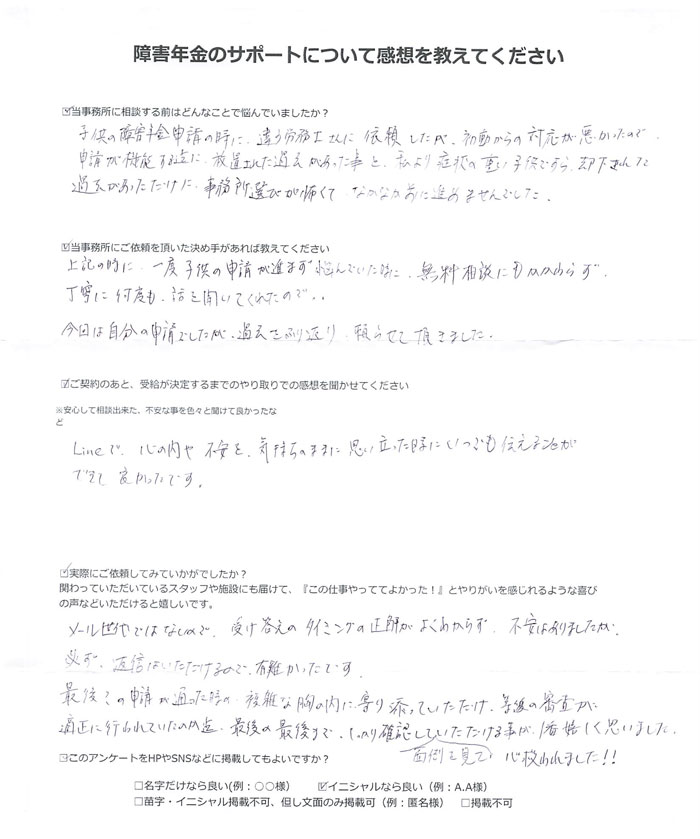 障害年金のサポートについて感想を教えてください
☑当事務所に相談する前はどんなことで悩んでいましたか？
子供の障害年金申請の時に、違う労務士さんに依頼したが、初動からの対応が悪かったので
申請が機能する迄に、放置された過去があった事と、私より症状の重い子供ですら、却下された
過去があっただけに、事務所選びが怖くて なかなか前に進めませんでした。
☑当事務所にご依頼を頂いた決め手があれば教えてください
上記の時に、一度子供の申請が進まず悩んでいた時に、無料相談にもかかわらず、
丁寧に何度も、話を聞いてくれたので、、
今回は自分の申請でしたが、過去をふり返り、頼らせて頂きました。
☑ご契約のあと、受給が決定するまでのやり取りでの感想を聞かせてください
※安心して相談出来た、不安な事を色々と聞けて良かったな
ど
Lineで、心の内や不安を、気持ちのままに思い立った時にいつでも伝えることが
できて良かったです。
☑実際にご依頼してみていかがでしたか？
関わっていただいているスタッフや施設にも届けて、『この仕事やっててよかった！』とやりがいを感じれるような喜び
の声などいただけると嬉しいです。
メール世代ではないので、受け答えのタイミングの正解がよくわからず、不安はありましたが、
必ず、返信はいただけるので、有難かったです。
最後 この申請が通った時の、複雑な胸の内に寄り添っていただけ、等級の審査が
適正に行われていたのか迄、最後の最後まで、しっかり確認していただける事が、1番嬉しく思いました。
面倒を見て 心救われました!!
☑このアンケートをHPやSNSなどに掲載してもよいですか？
□名字だけなら良い(例：○○様） ☑イニシャルなら良い（例：A.A様）
□苗字・イニシャル掲載不可、但し文面のみ掲載可（例：匿名様） □掲載不可